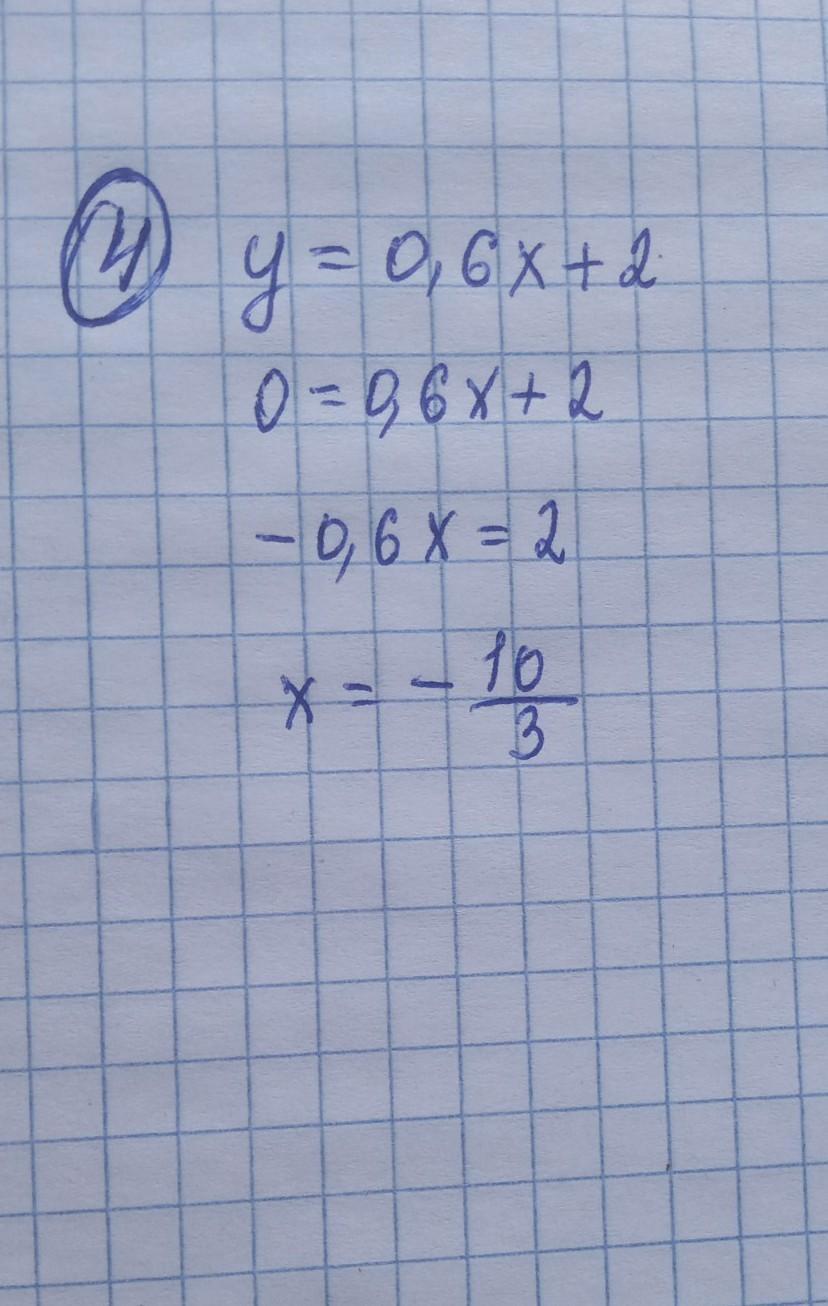 4 y = 0,6x + 2
0 = 0,6x + 2
- 0,6x = 2
x = - 10/3